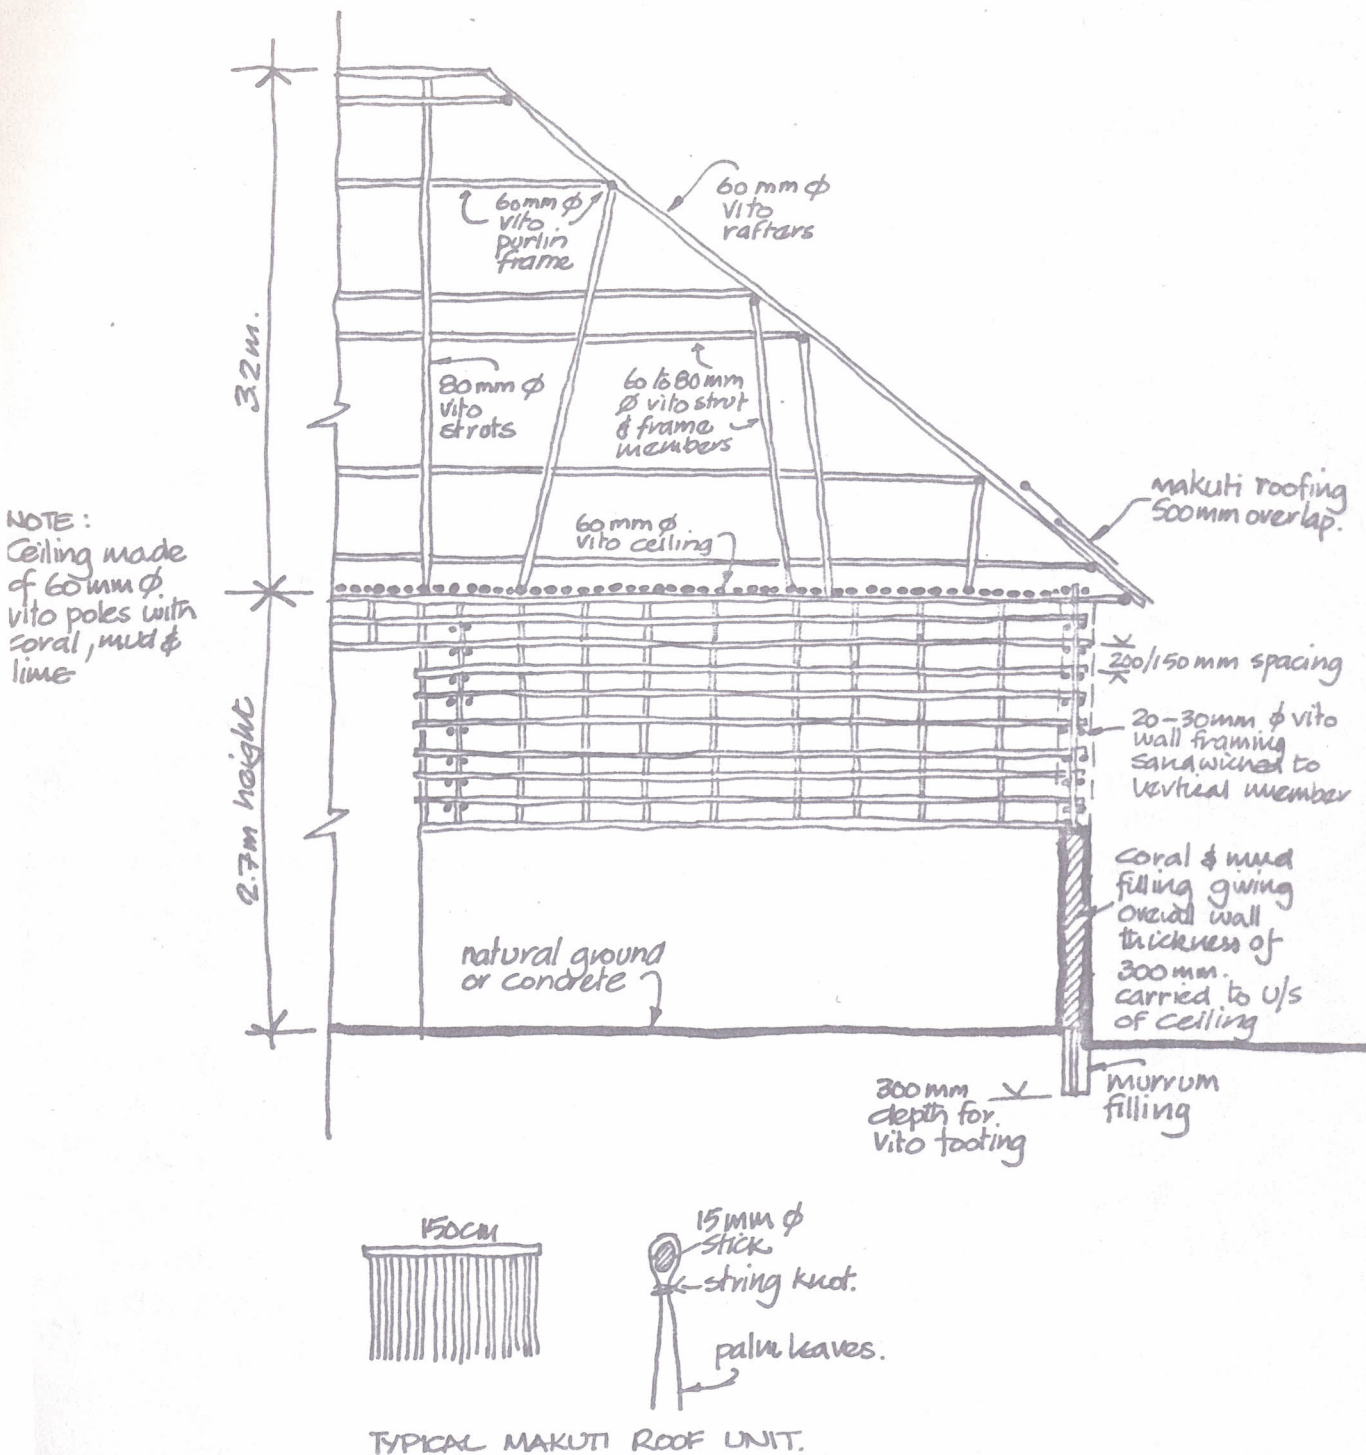 3.2m.
60mm ϕ
vito
purlin
frame
60mm ϕ
vito
rafters
80mm ϕ
vito
struts
60 to 80mm
ϕ vito strut
& frame
members
60mm ϕ
vito ceiling
makuti roofing
500mm overlap.
NOTE:
Ceiling made
of 60mm ϕ
vito poles with
coral, mud &
lime
2.7m height
200/150mm spacing
20-30mm ϕ vito
wall framing
sandwiched to
vertical member
natural ground
or concrete
coral & mud
filling giving
overall wall
thickness of
300mm.
carried to U/S
of ceiling
300mm
depth for
vito footing
murrum
filling
150cm
15mm ϕ
stick
string knot.
palm leaves.
TYPICAL MAKUTI ROOF UNIT.